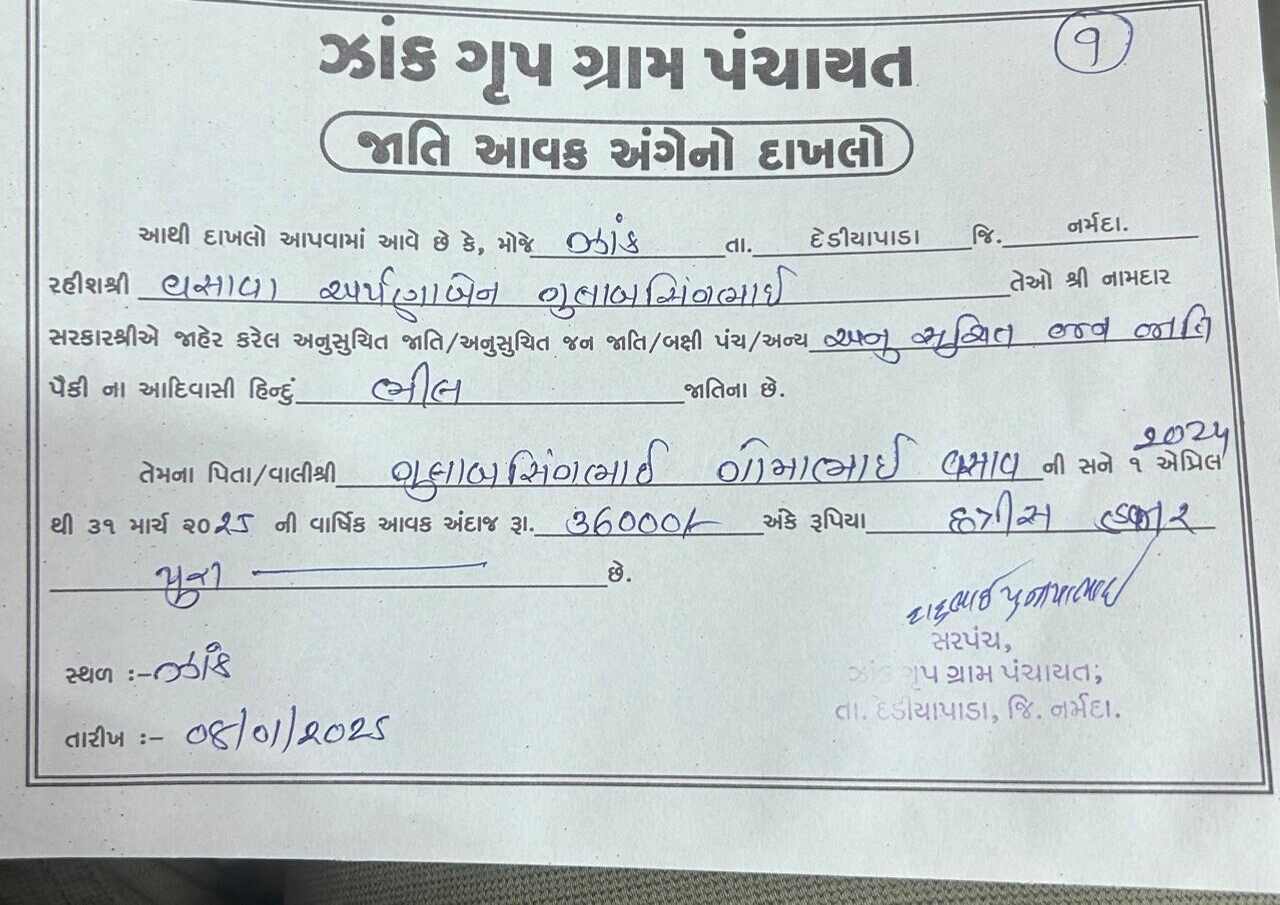 ૧
ઝાંક ગૃપ ગ્રામ પંચાયત
જાતિ આવક અંગેનો દાખલો
આથી દાખલો આપવામાં આવે છે કે, મોજે ઝાંક તા. દેડીયાપાડા જિ. નર્મદા.
રહીશશ્રી વસાવા અર્પણાબેન ગુલાબસિંગભાઈ તેઓ શ્રી નામદાર
સરકારશ્રીએ જાહેર કરેલ અનુસુચિત જાતિ/અનુસુચિત જન જાતિ/બક્ષી પંચ/અન્ય અનુ સુચિત જન જાતિ
પૈકી ના આદિવાસી હિન્દું ભીલ જાતિના છે.
તેમના પિતા/વાલીશ્રી ગુલાબસિંગભાઈ ગોમાભાઈ વસાવા ની સને ૧ એપ્રિલ ૨૦૨૪
થી ૩૧ માર્ચ ૨૦૨૫ ની વાર્ષિક આવક અંદાજ રૂા. ૩6૦૦૦/- અંકે રૂપિયા છત્રીસ હજાર
પુરા છે.
સરપંચ,
ઝાંક ગૃપ ગ્રામ પંચાયત;
તા. દેડીયાપાડા, જિ. નર્મદા.
સ્થળ :- ઝાંક
તારીખ :- ૦૪/૦૧/૨૦૨૫